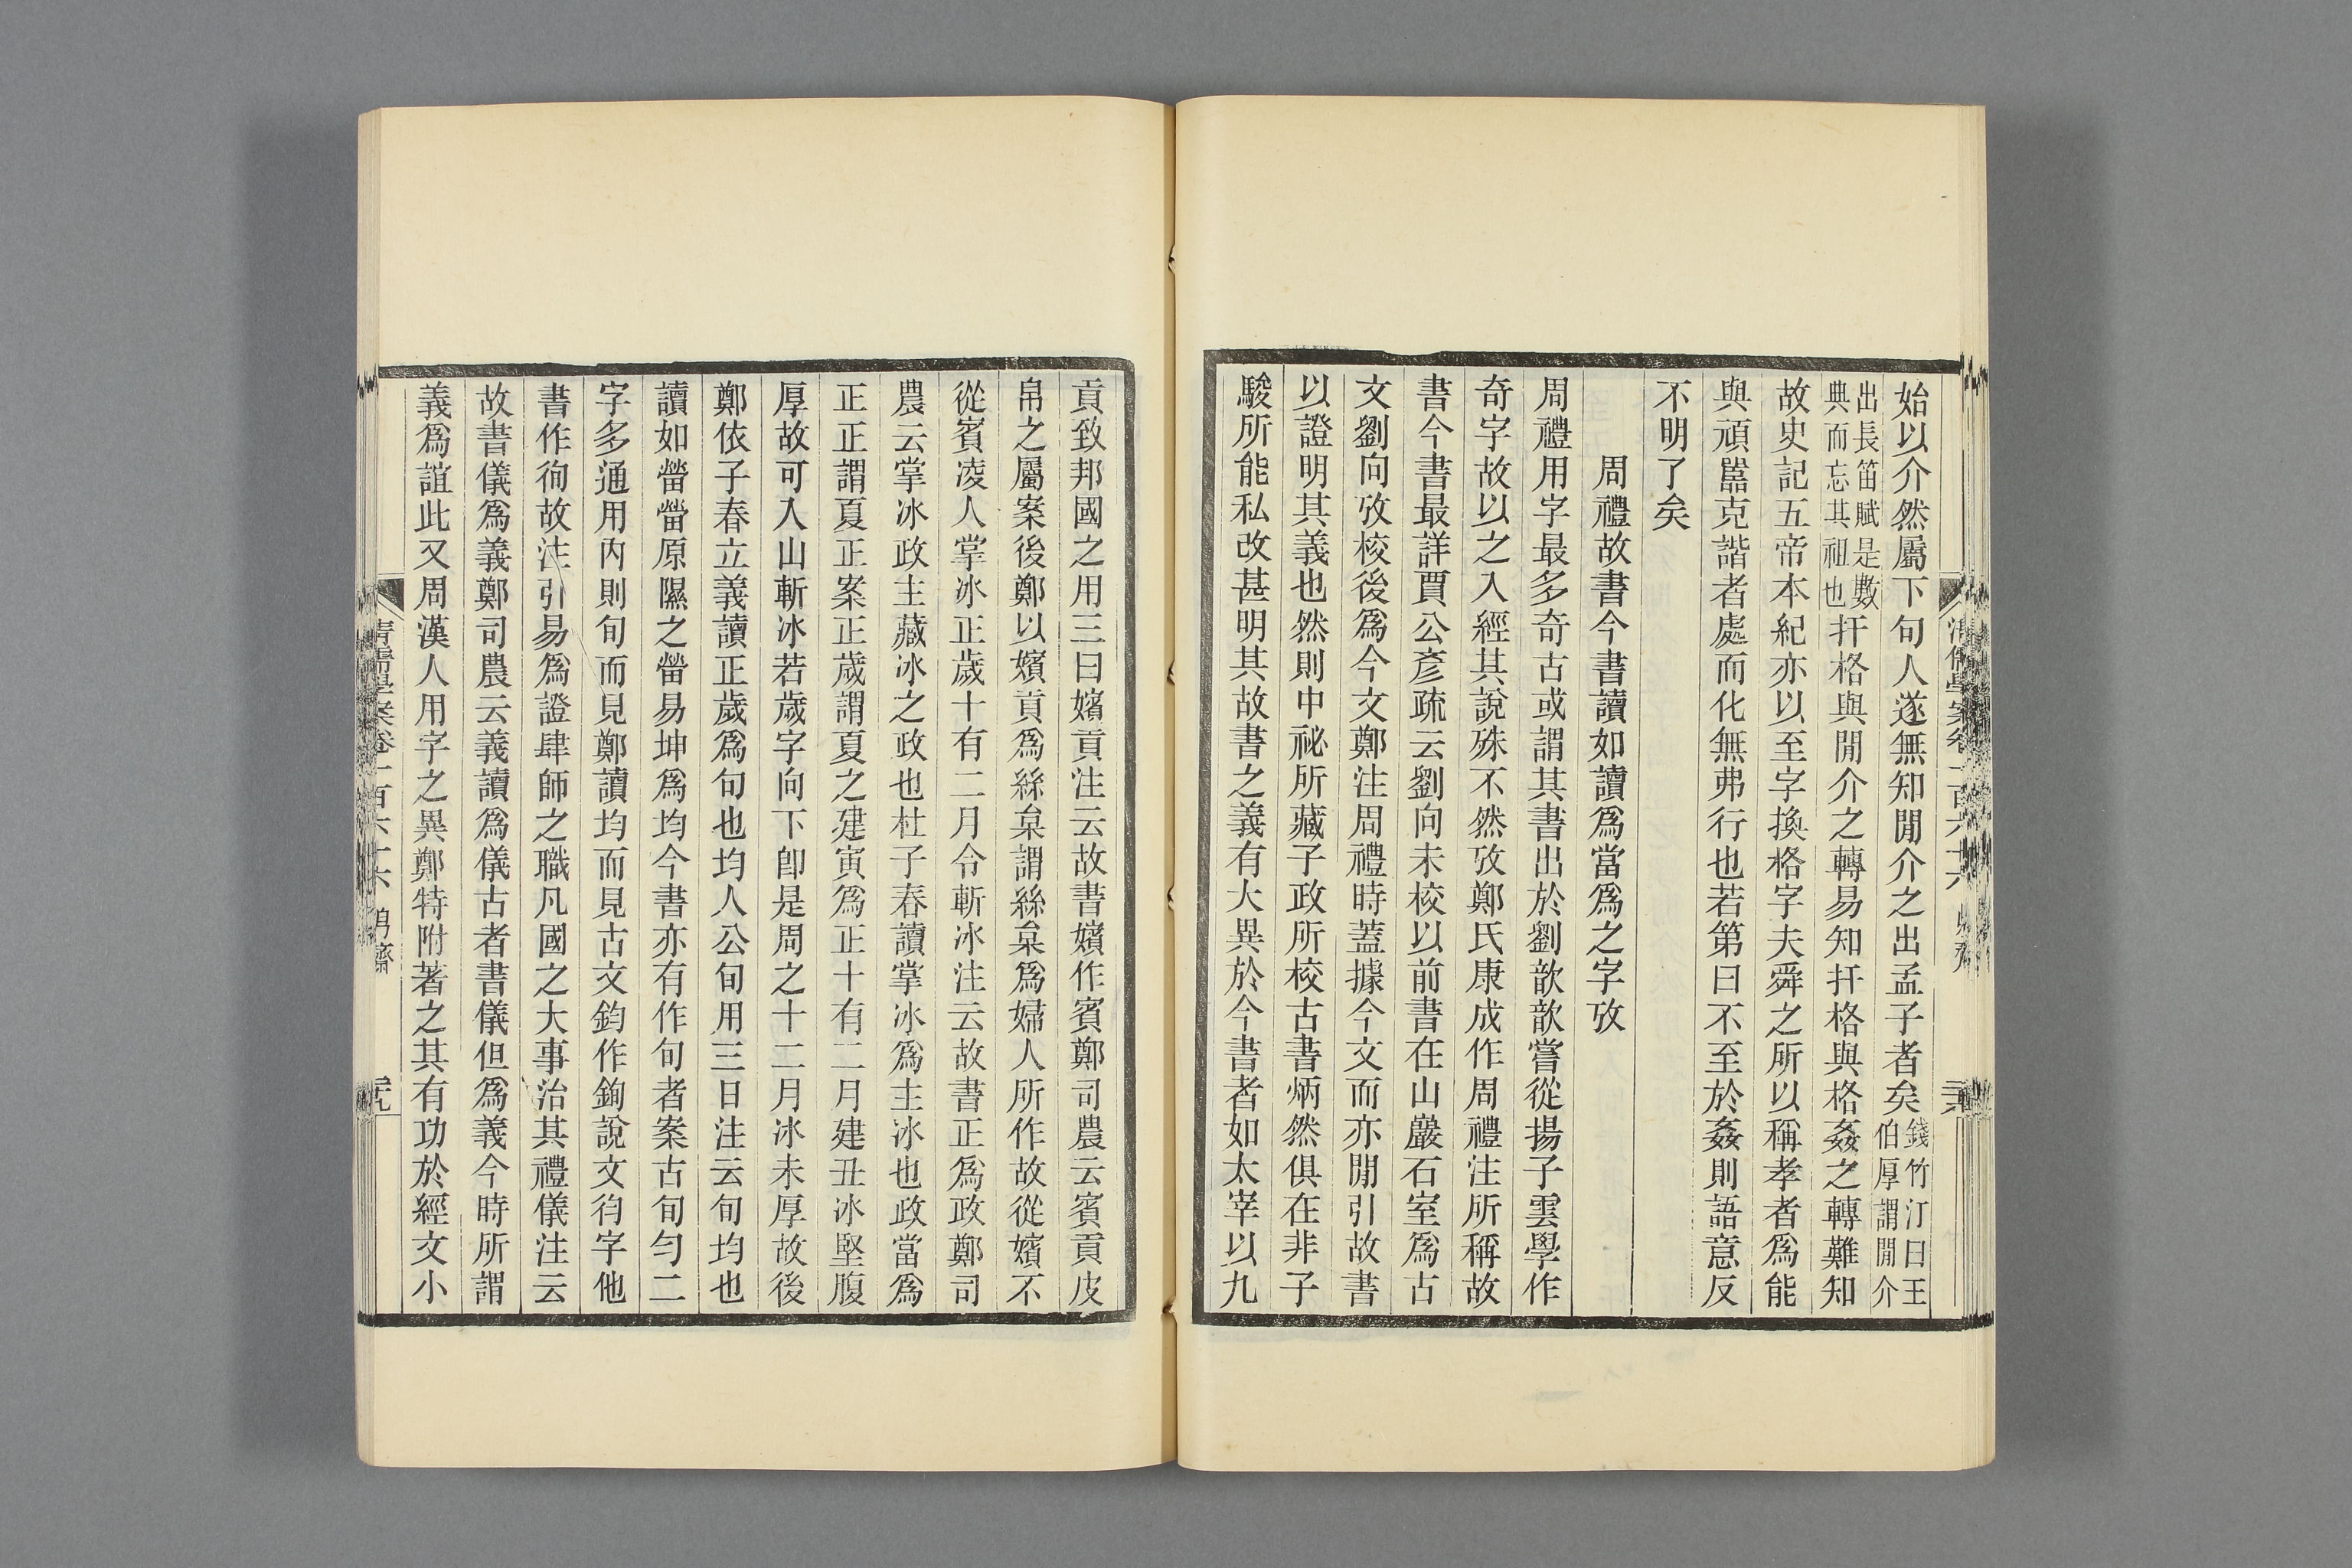 始以介然屬下句人遂無知閒介之出孟子者矣錢竹汀曰王伯厚謂閒介
出長笛賦是數典而忘其祖也扞格與閒介之轉易知扞格與格姦之轉難知
故史記五帝本紀亦以至字換格字夫舜之所以稱孝者爲能
與頑嚚克諧者處而化無弗行也若第曰不至於姦則語意反
不明了矣
周禮故書今書讀如讀爲當爲之字攷
周禮用字最多奇古或謂其書出於劉歆歆嘗從揚子雲學作
奇字故以之入經其說殊不然攷鄭氏康成作周禮注所稱故
書今書最詳賈公彥疏云劉向未校以前書在山巖石室爲古
文劉向攷校後爲今文鄭注周禮時蓋據今文而亦閒引故書
以證明其義也然則中祕所藏子政所校古書炳然俱在非子
駿所能私改甚明其故書之義有大異於今書者如太宰以九
貢致邦國之用三曰嬪貢注云故書嬪作賓鄭司農云賓貢皮
帛之屬案後鄭以嬪貢爲絲枲謂絲枲爲婦人所作故從嬪不
從賓凌人掌冰正歲十有二月令斬冰注云故書正爲政鄭司
農云掌冰政主藏冰之政也杜子春讀掌冰爲主冰也政當爲
正正謂夏正案正歲謂夏之建寅爲正十有二月建丑冰堅腹
厚故可入山斬冰若歲字向下卽是周之十二月冰未厚故後
鄭依子春立義讀正歲爲句也均人公旬用三日注云旬均也
讀如螢螢原隰之螢易坤爲均今書亦有作旬者案古旬勻二
字多通用內則旬而見鄭讀均而見古文鈞作銁說文袀字他
書作徇故注引易爲證肆師之職凡國之大事治其禮儀注云
故書儀爲義鄭司農云義讀爲儀古者書儀但爲義今時所謂
義爲誼此又周漢人用字之異鄭特附著之其有功於經文小